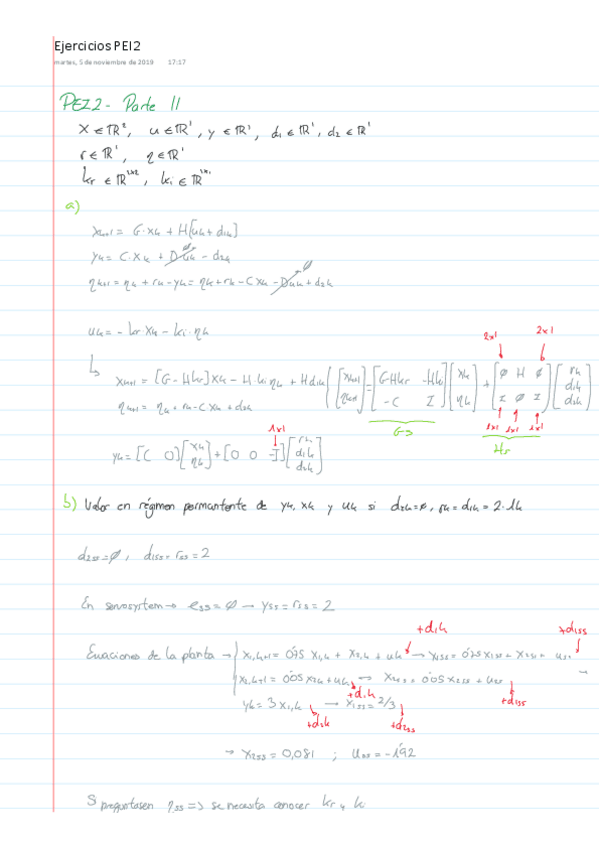 Ejercicios PEI2
martes, 5 de noviembre de 2019 17:17
PEI2 - Parte II
x ∈ ℝ², u ∈ ℝ¹, y ∈ ℝ¹, d₁ ∈ ℝ¹, d₂ ∈ ℝ¹
r ∈ ℝ¹, η ∈ ℝ¹
kr ∈ ℝ , ki ∈ ℝ
a)
xk+1 = G·xk + H[uk + d1k]
yk = C·xk + Duk - d2k
ηk+1 = ηk + rk - yk = ηk + rk - Cxk - Duk + d2k
uk = -kr·xk - ki·ηk
2x1 2x1
xk+1 = [G-Hkr]xk - H ki ηk + H d1k [xk+1 ηk+1] = [G-Hkr -Hki -C I][xk ηk] + [∅ H ∅ I ∅ I][rk d1k d2k]
ηk+1 = ηk + rk - Cxk + d2k
1x1 1x1 1x1
Hr
1x1
yk = [C 0][xk ηk] + [0 0 -I][rk d1k d2k]
b) Valor en régimen permantente de yk, xk y uk si d2k=∅, rk = d1k = 2·1k
d2ss=∅, d1ss=rss=2
En servosystem → ess=∅ → yss=rss=2
+d1k +d1ss
Ecuaciones de la planta → x1,k+1 = 0'75 x1,k + x2,k + uk → x1ss = 0'75 x1ss + x2ss + uss
x2,k+1 = 0'05 x2k + uk → x2ss = 0'05 x2ss + uss
+d1k +d1ss
yk = 3 x1,k → x1ss = 2/3
+d2k +d2ss
→ x2ss = 0,081 ; uss = -1'92
Si preguntasen ηss => se necesita conocer kr y ki